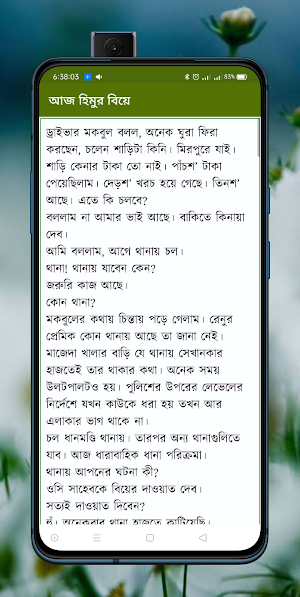 6:38:03
83%
আজ হিমুর বিয়ে
ড্রাইভার মকবুল বলল, অনেক ঘুরা ফিরা
করছেন, চলেন শাড়িটা কিনি। মিরপুরে যাই।
শাড়ি কেনার টাকা তো নাই। পাঁচশ’ টাকা
পেয়েছিলাম। দেড়শ’ খরচ হয়ে গেছে। তিনশ’
আছে। এতে কি চলবে?
বললাম না আমার ভাই আছে। বাকিতে কিনায়া
দেব।
আমি বললাম, আগে থানায় চল।
থানা! থানায় যাবেন কেন?
জরুরি কাজ আছে।
কোন থানা?
মকবুলের কথায় চিন্তায় পড়ে গেলাম। রেনুর
প্রেমিক কোন থানায় আছে তা জানা নেই।
মাজেদা খালার বাড়ি যে থানায় সেখানকার
হাজতেই তার থাকার কথা। অনেক সময়
উলটপালটও হয়। পুলিশের উপরের লেভেলের
নির্দেশে যখন কাউকে ধরা হয় তখন আর
এলাকার ভাগ থাকে না।
চল ধানমণ্ডি থানায়। তারপর অন্য থানাগুলিতে
যাব। আজ ধারাবাহিক থানা পরিক্রমা।
থানায় আপনের ঘটনা কী?
ওসি সাহেবকে বিয়ের দাওয়াত দেব।
সত্যই দাওয়াত দিবেন?
হুঁ। অনেকবার থানা হাজতে কাটিয়েছি।